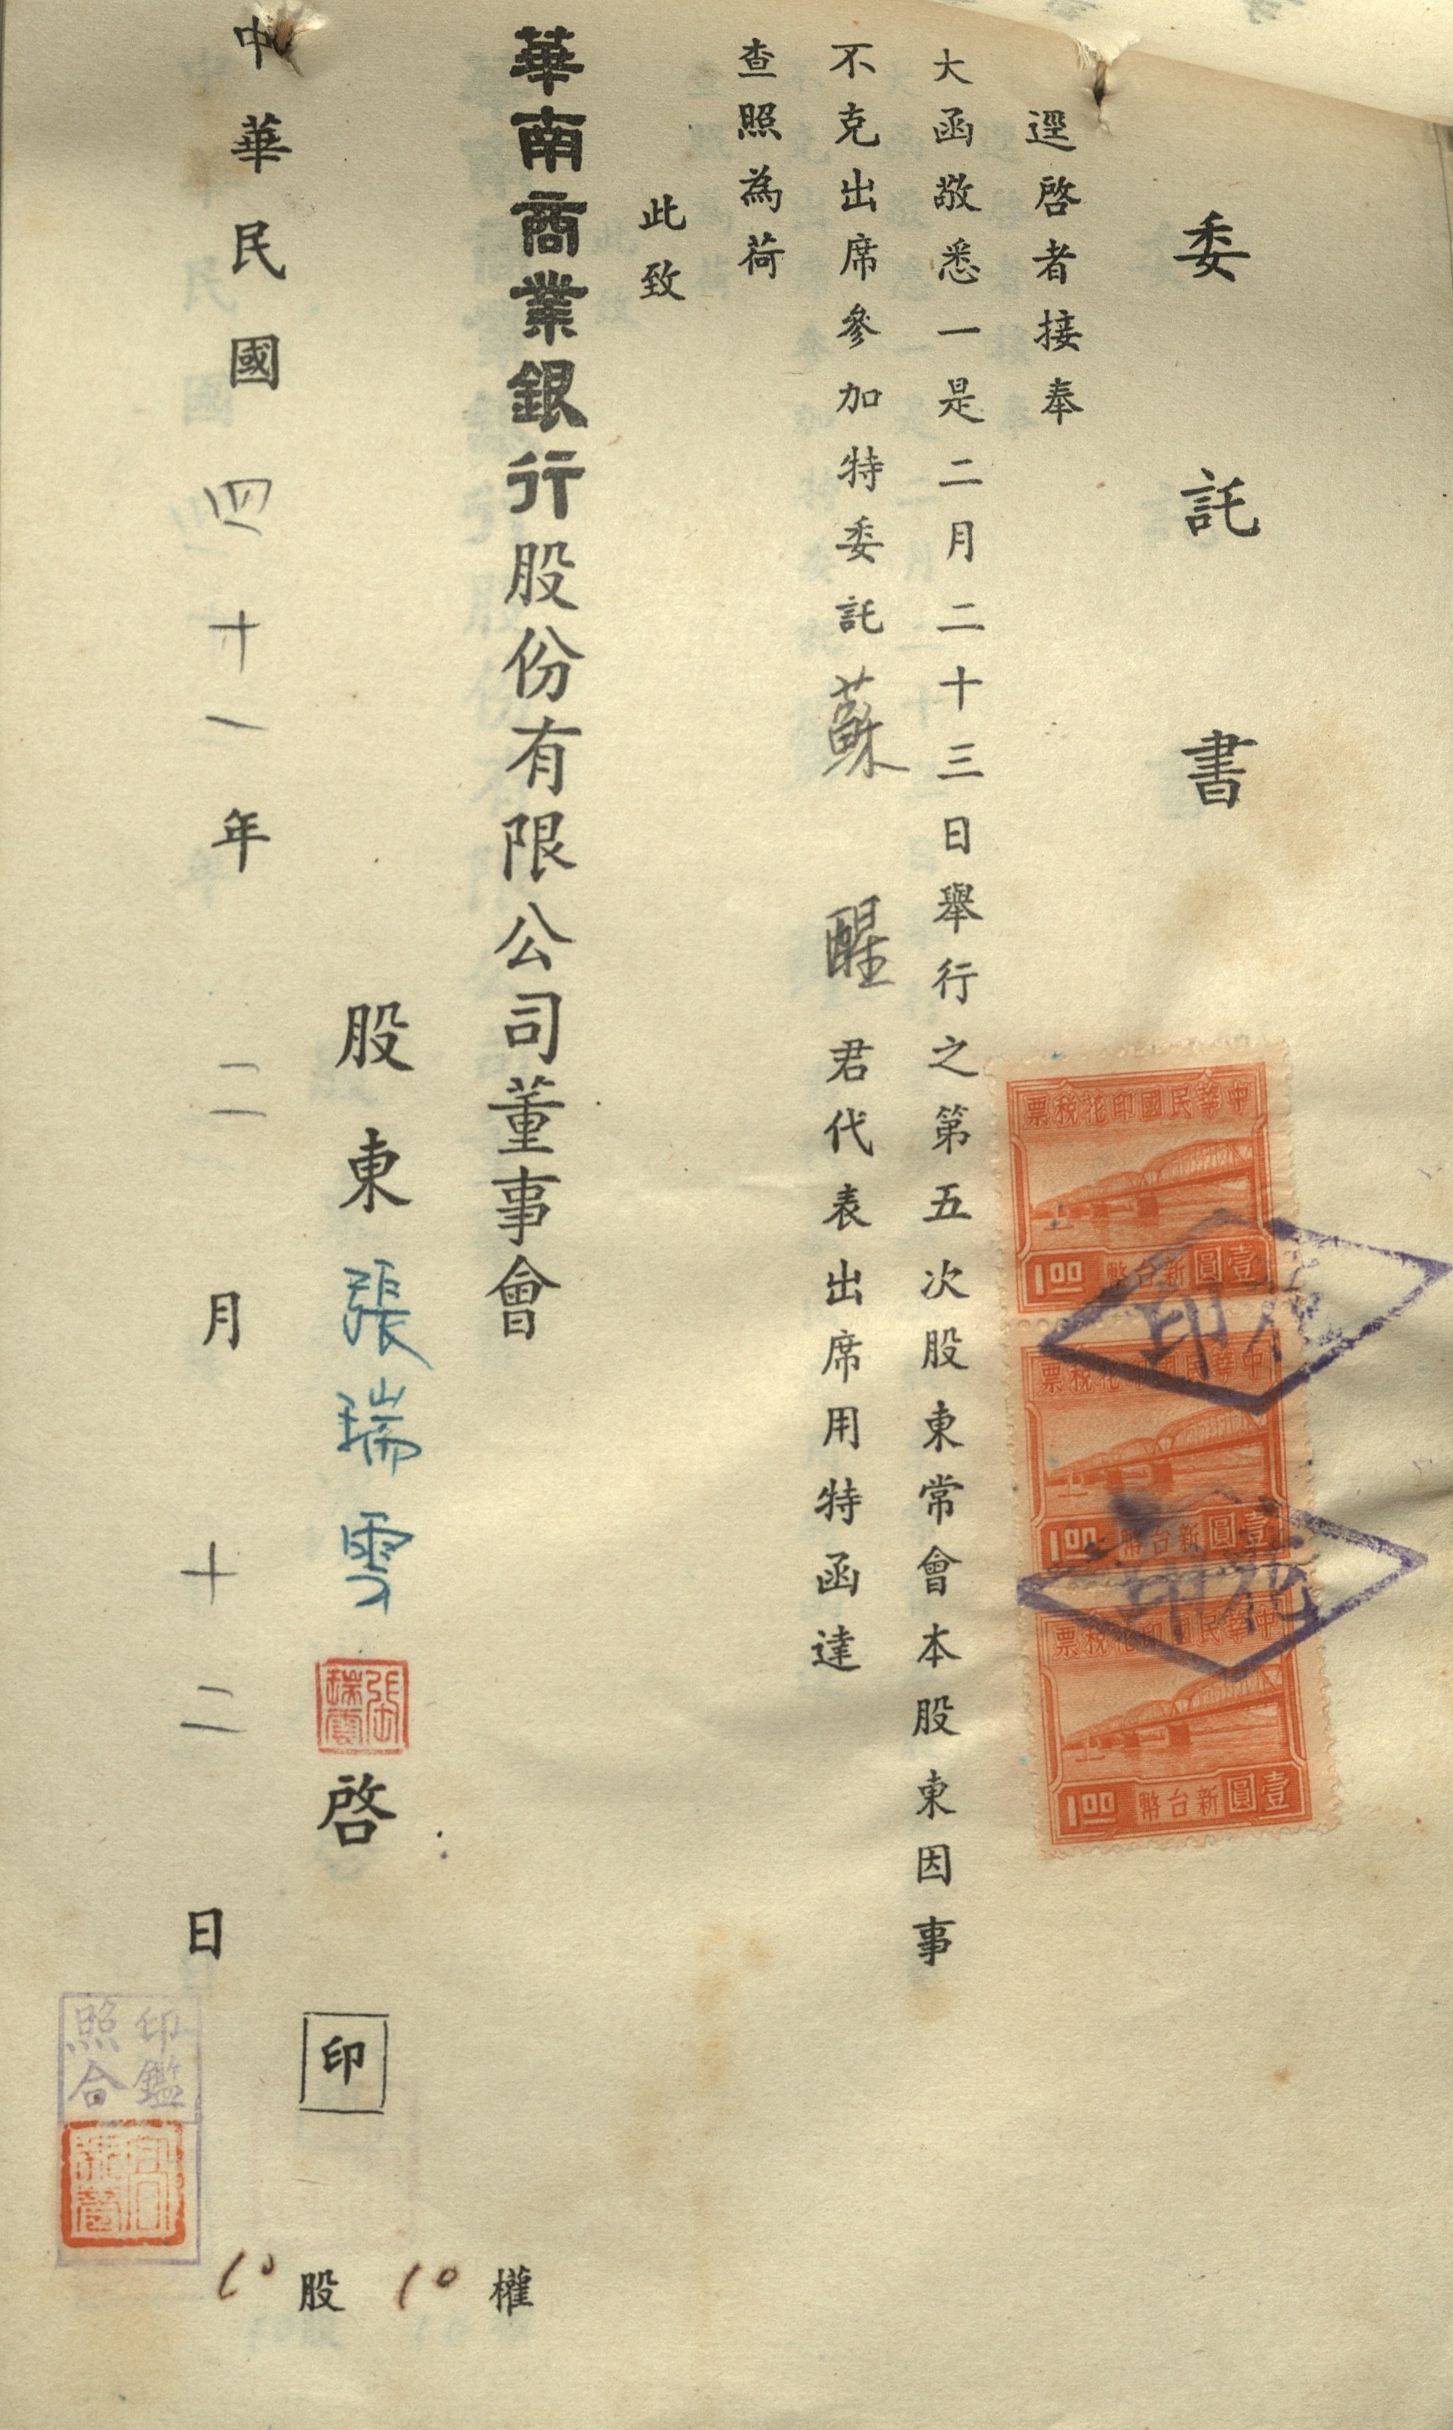 委託書
逕啓者接奉
大函敬悉一是二月二十三日舉行之第五次股東常會本股東因事
不克出席參加特委託蘇醒君代表出席用特函達
查照為荷
此致
華南商業銀行股份有限公司董事會
股東張瑞雪啓
印
中華民國四十一年二月十二日
10股10權
票稅花印國民華中
1.00幣台新圓壹
票稅花印國民華中
1.00幣台新圓壹
票稅花印國民華中
1.00幣台新圓壹
印花
印花
印鑑
照合